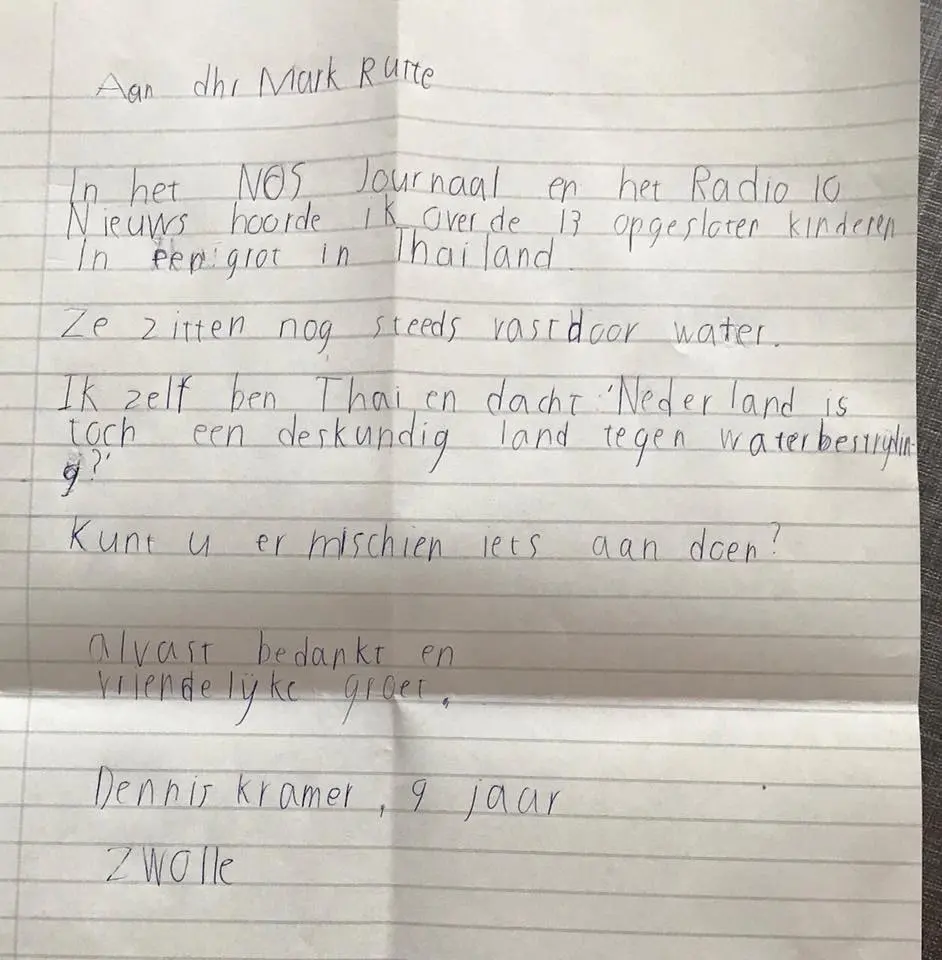 Aan dhr Mark Rutte
In het NOS Journaal en het Radio 10
Nieuws hoorde ik over de 13 opgesloten kinderen
In een grot in Thailand.
Ze zitten nog steeds vast door water.
Ik zelf ben Thai en dacht 'Nederland is
toch een deskundig land tegen waterbestrijdin
g?'
Kunt u er mischien iets aan doen?
alvast bedankt en
vriendelijke groet,
Dennis Kramer, 9 jaar
Zwolle